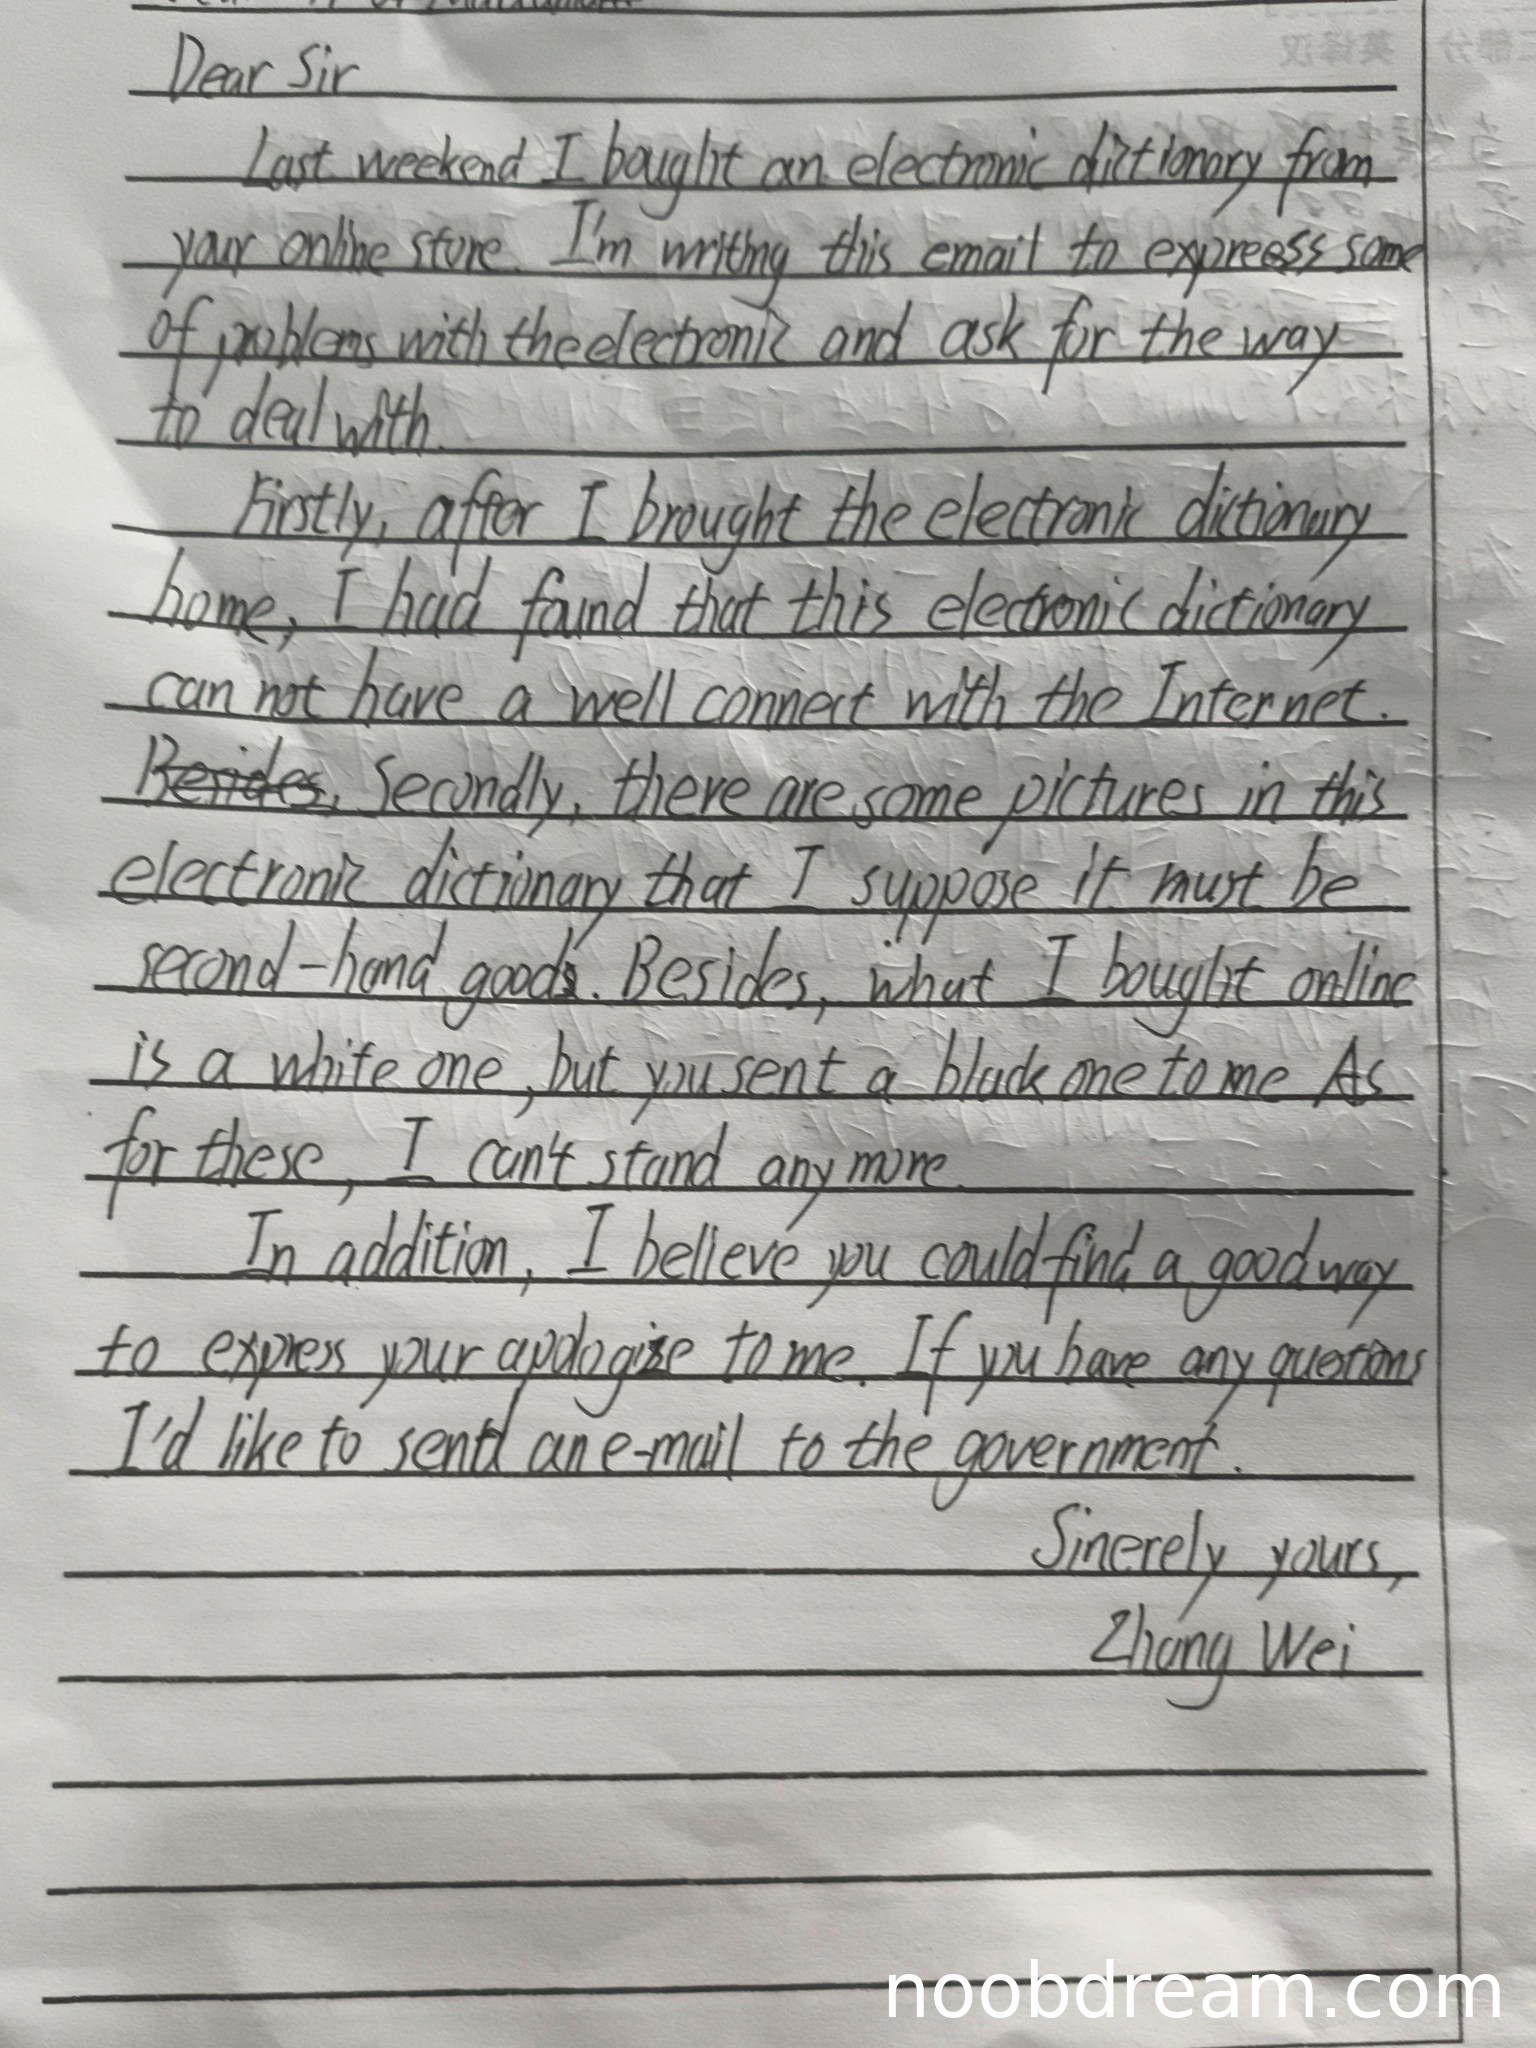 Dear Sir
Last weekend I bought an electronic dictionary from
your online store. I'm writing this email to expreess some
of problems with the electronic and ask for the way
to deal with.
Firstly, after I brought the electronic dictionary
home, I had found that this electronic dictionary
can not have a well connect with the Internet.
Besides, Secondly, there are some pictures in this
electronic dictionary that I suppose it must be
second-hand goods. Besides, what I bought online
is a white one, but you sent a black one to me As
for these, I can't stand any more.
In addition, I believe you could find a good way
to express your apologize to me. If you have any questions
I'd like to send an e-mail to the government.
Sinerely yours,
Zhang Wei
noobdream.com